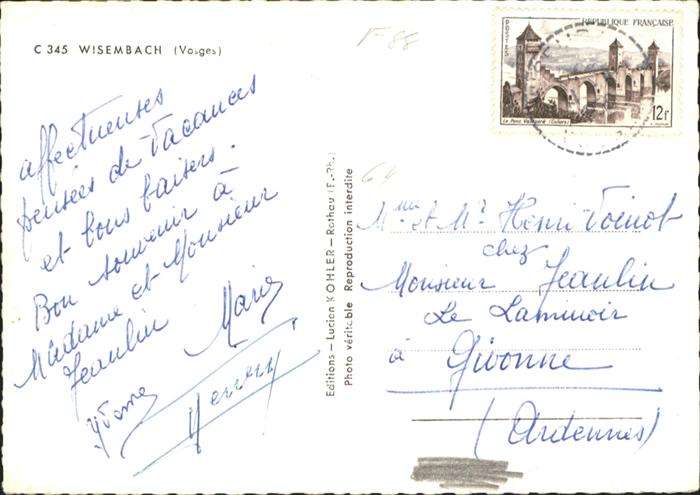 C 345 WISEMBACH (Vosges)
F 88
RÉPUBLIQUE FRANÇAISE
POSTES
Le Pont Valentré (Cahors)
12F
affectueuses
pensées de Vacances
et bons baisers.
Bon souvenir à
Madame et Monsieur
Jeaulin Marie
Yvonne
Editions – Lucien KOHLER – Rothau (B.-Rh.)
Photo véritable Reproduction interdite
64
Mme et Mr Henri Voinot
chez
Monsieur Jeaulin
Le Laminoir
à Givonne
(Ardennes)